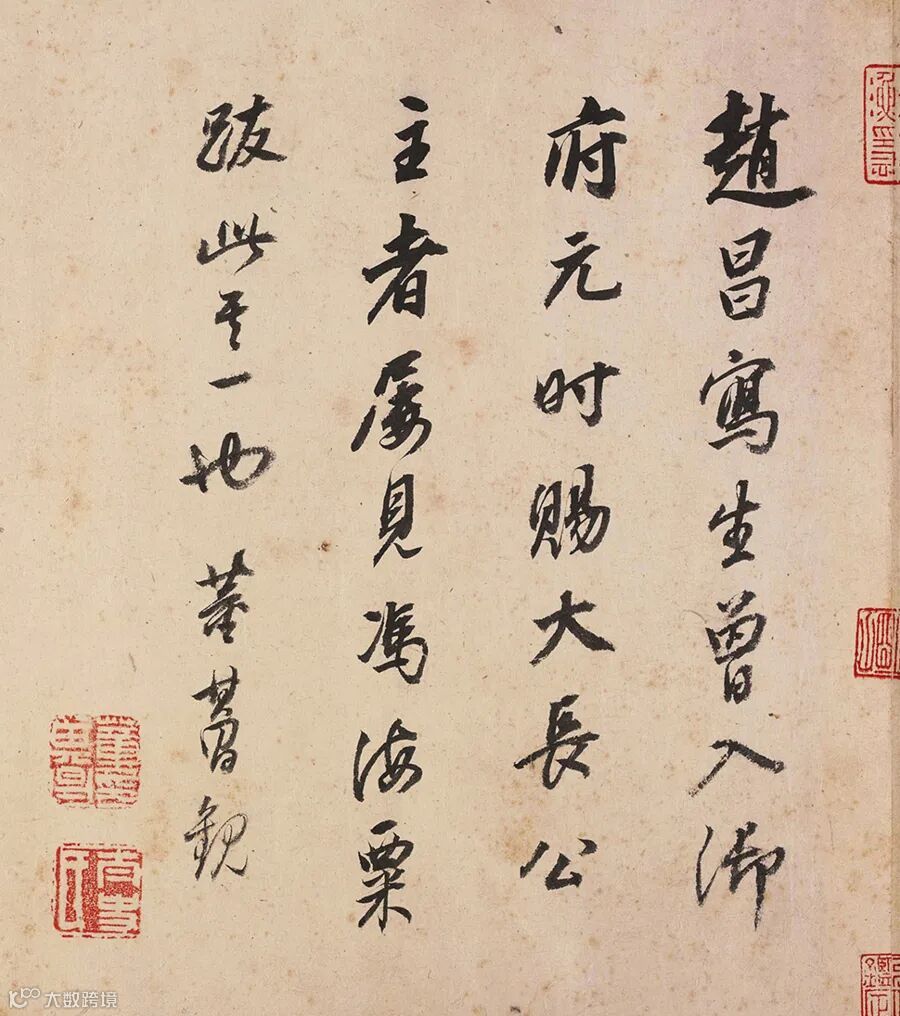 趙昌寫生曾入御
府元时賜大長公
主者屡見馮海粟
跋此其一也 董其昌觀
大数跨境